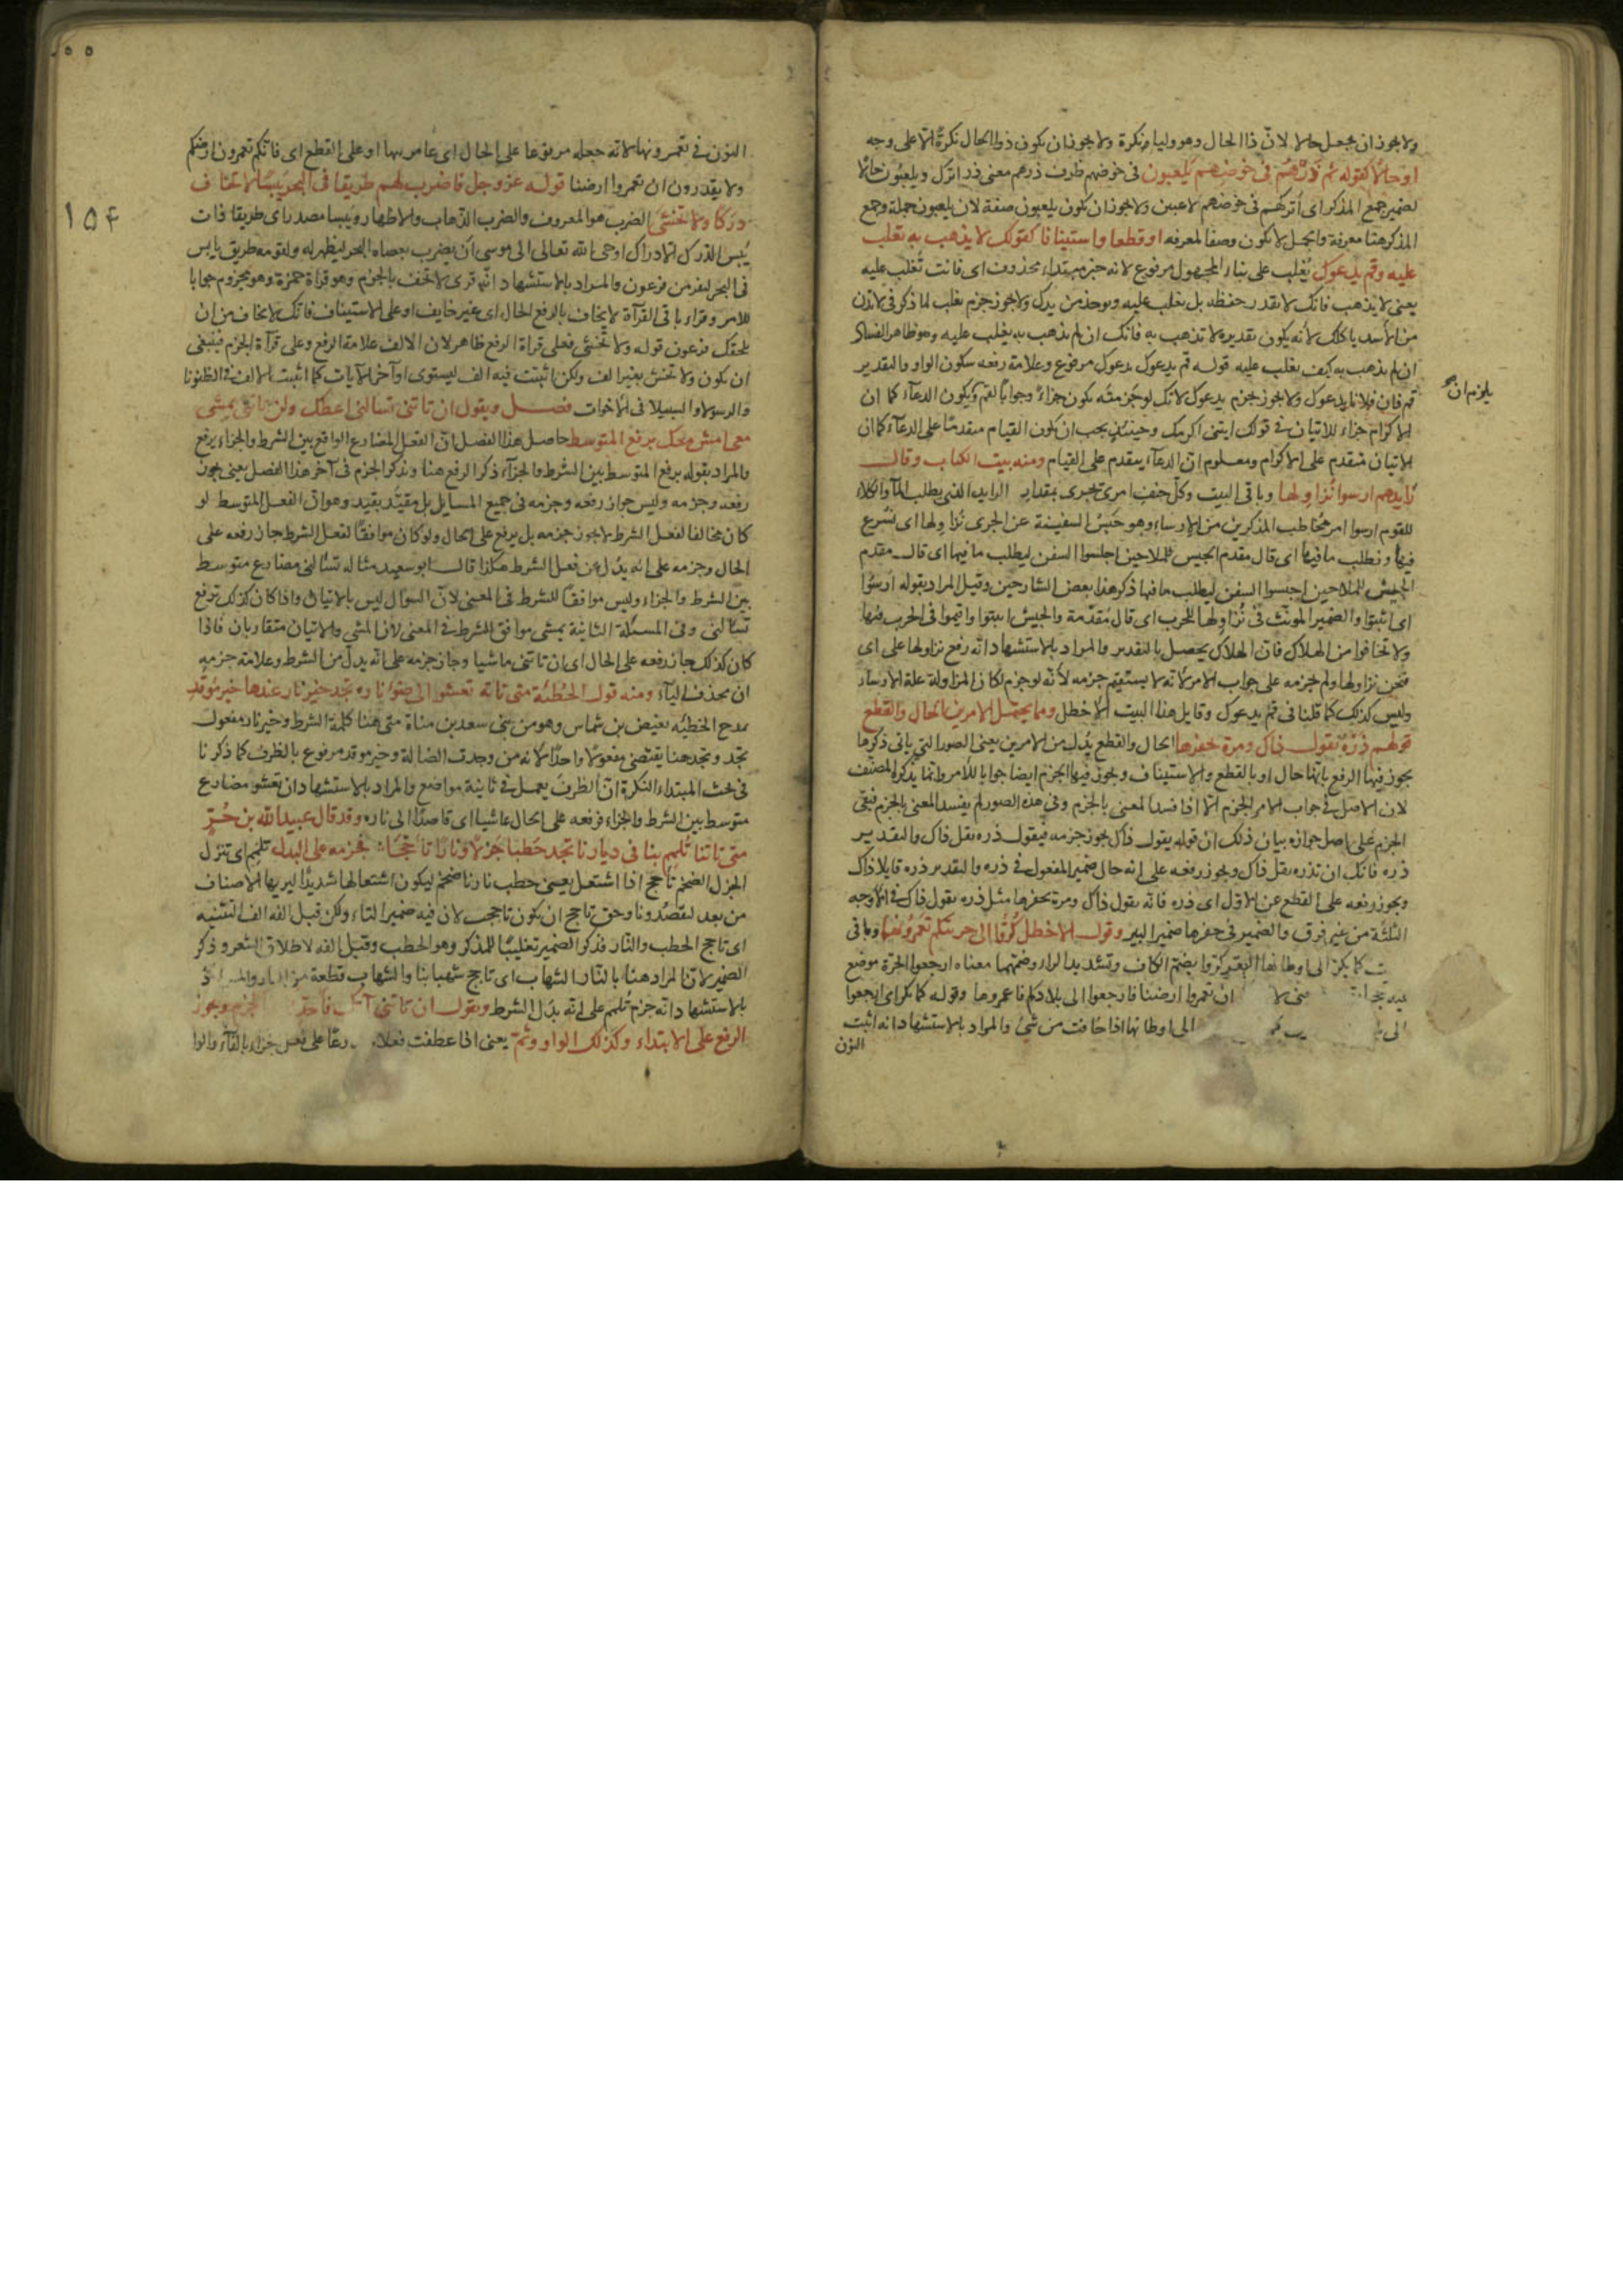 ولا يجوز ان يجعل حالا لانّ ذا الحال وهو وليا نكرة ولا يجوز ان يكون ذوا الحال نكرةً الّا على وجه
او حالًا كقوله ثم ذَرْهُم في خوضِهم يلعبون في خوضهم ظرف ذرهم معنى ذر اترك ويلعبون حالًا
لضمير جمع المذكر اى اتركهم في خوضهم لاعبين ولا يجوز ان يكون يلعبون صفة لان يلعبون جملة وجمع
المذكر هنا معرفة والجمل لا يكون وصفا لمعرفه او قطعا واستينافا كقولك لا يذهب به تغلب
عليه وقم يدعوك تُغلب على بناء المجهول مرفوع لانه خبر مبتداء محذوف اى فانت تُغلب عليه
يعنى لا يذهب فانك لا تقدر حفظه بل تغلب عليه ويوخذ من يدك ولا يجوز جزم تغلب لما ذكر في لا تدن
من الاسد ياكلك لانه يكون تقديره لا تذهب به فانك ان لم تذهب به يغلب عليه وهو ظاهر الفساد
ان لم يذهب به كيف يغلب عليه قوله قم يدعوك يدعوك مرفوع وعلامة رفعه سكون الواو والتقدير
قم فان فلانا يدعوك ولا يجوز جزم يدعوك لانك لو جزمته يكون جزاءً وجوابًا لقم ويكون الدعاء كما ان
يلزم ان
الاكرام جزاء للاتيان في قولك ايتنى اكرمك وحينئذٍ يجب ان يكون القيام متقدمًا على الدعاء كما ان
الاتيان متقدم على الاكرام ومعلوم انّ الدعاء يتقدم على القيام ومنه بيت الكتاب وقال
رايدهم ارسوا نُزاولها وباقى البيت وكلّ حتف امرئ يجرى بمقدار الرايد الذى يطلب الماء والكلاء
للقوم ارسوا امر مخاطب المذكرين من الارساء وهو حبس السفينة عن الجرى نُزاولها اى نشرع
فيها ونطلب ما فيها اى قال مقدم الجيس للملاحين اجلسوا السفن ليطلب ما فيها اى قال مقدم
الجيش للملاحين احبسوا السفن ليطلب ما فيها ذكر هذا بعض الشارحين وقيل المراد بقوله ارسُوا
اى اثبتوا والضمير المونّث في نُزاولها للحرب اى قال مُقدّمة والجيش اثبتوا واقيموا في الحرب فيها
ولا تخافوا من الهلاك فانّ الهلاك يحصل بالتقدير والمراد بالاستشهاد انه رفع نزاولها على اى
فنحن نزاولها ولم يجزمه على جواب الامر لانه لا يستقيم جزمه لانّه لو جزم لكان المزاولة علة الارساء
وليس كذلك كما قلنا في قم يدعوك وقايل هذا البيت الاخطل ومما يحتمل الامرين الحال والقطع
قولهم ذَرْهُ يقول ذاك ومرة يحفرها الحال والقطع بَدل من الامرين يعنى الصور التى ياتى ذكرها
يجوز فيها الرفع بانها حال او بالقطع والاستيناف ويجوز فيها الجزم ايضا جوابا للامر وانما يذكر المصنف
لان الاصل في جواب الامر الجزم الّا اذا فسد المعنى بالجزم وفى هذه الصور لم يفسد المعنى بالجزم فبقى
الجزم على اصل جوازه بيان ذلك ان قوله يقول ذاك يجوز جزمه فيقول ذره يقل ذاك والتقدير
ذره فانك ان تذره يقل ذاك ويجوز رفعه على انه حال ضمير المفعول في ذره والتقدير ذره قايلا ذاك
ويجوز رفعه على القطع عن الاول اى ذره فانه يقول ذاك ومرة يحفرها مثل ذره يقول ذاك في الاوجه
الثلثة من غير فرق والضمير في حفرها ضمير البير وقول الاخطل كُرّوا الى حرتيكم تَعمُرونَها وباقى
كما يكرّ الى اوطانها البقر كروا بضم الكاف وتشديد الراء وضمّها معناه ارجعوا الحرّة موضع
ان تعمروا ارضنا فارجعوا الى بلادكم فاعمروها وقوله كما يكر اى ارجعوا
الى اوطانها اذا خافت من شئ والمراد بالاستشهاد انه اثبت
النون
١٥۴
النون في تعمرونها لانه جعله مرفوعا على الحال اى عامريها او على القطع اى فانكم تعمرون ارضكم
ولا يقدرون ان تعمروا ارضنا قوله عز وجل فاضرب لهم طريقا في البحر يبسًا لا تخاف
دركا ولا تخشى الضرب هو المعروف والضرب الذهاب والاظهار ويَبسا مصدر اى طريقا ذات
يُبس الدرك الادراك اوحى الله تعالى الى موسى ان يضرب بعصاه البحر ليظهر له ولقومه طريق يابس
في البحر ليفر من فرعون والمراد بالاستشهاد انّه قرى لا تخف بالجزم وهو قراة حمزة وهو مجزوم جوابا
للامر وقراء باقى القراة لا يخاف بالرفع الحال اى غير خايف او على الاستيناف فانك لا تخاف من ان
يلحقك فرعون قوله ولا تخشى فعلى قراة الرفع ظاهر لان الالف علامة الرفع وعلى قراة الجزم فينبغى
ان يكون ولا تخش بغير الف ولكن اثبتت فيه الف ليستوى اواخر الايات كما اثبت الالف في الظنونا
والرسولا والسبيلا في الاخوات فصل ويقول ان تاتنى تسالنى اعطك ولن تاتنى تمشى
معى امش معك برفع المتوسط حاصل هذا الفصل انّ الفعل المضارع الواقع بين الشرط والجزاء يرفع
والمراد بقوله برفع المتوسط بين الشرط والجزاء ذكر الرفع هنا ويذكر الجزم في آخر هذا الفصل يعنى يجوز
رفعه وجزمه وليس جواز رفعه وجزمه في جميع المسايل بل مقيّد بقيد وهو انّ الفعل المتوسط لو
كان مخالفا لفعل الشرط لا يجوز جزمه بل يرفع على الحال ولو كان موافقًا لفعل الشرط جاز رفعه على
الحال وجزمه على انه بدل عن فعل الشرط هكذا قال ابو سعيد مثاله تسالنى مضارع متوسط
بين الشرط والجزاء وليس موافقًا للشرط في المعنى لانّ السوال ليس بالاتيان واذا كان كذلك ترفع
تسالنى وفى المسئلة الثانية يمشى موافق للشرط في المعنى لان المشى والاتيان متقاربان فاذا
كان كذلك جاز رفعه على الحال اى ان تاتنى ماشيا وجاز جزمه على انّه بدل من الشرط وعلامة جزمه
ان يحذف الياء ومنه قول الحُطئة متى تاته تعشو الى ضوء ناره تجد خير نار عندها خير مُوقد
مدح الحطيئه بغيض بن شماس وهو من بنى سعد بن مناة متى هنا كلمة الشرط وخير نار مفعول
تجد وتجد هنا يقتضى مفعولًا واحدًا لانه من وجدت الضالة وخير موقد مرفوع بالظرف كما ذكرنا
في بحث المبتداء النكرة انّ الظرف يعمل في ثمانية مواضع والمراد بالاستشهاد ان تعشو مضارع
متوسط بين الشرط والجزاء فرفعه على الحال عاشيا اى قاصدًا الى ناره وقد قال عبيد الله بن حُرّ
متى تاتنا تُلمِم بنا في ديارنا تجد حَطبا جَزلًا ونارًا تاجّجَا فجزمه على البدل تلمم اى تنزل
الجزل الضخم تاجج اذا اشتعل يعنى حطب نارنا ضخم ليكون اشتعالها شديدًا ليريها الاصناف
من بعد ليقصدونا وحق تاجج ان يكون تاججت لان فيه ضمير التاء ولكن قيل الفه الف التثنيه
اى تاجج الحطب والنار فذكر الضمير تغليبًا للمذكر وهو الحطب وقيل الفه لاطلاق الشعر وذكر
الضمير لانّ المراد هنا بالنّار الشهاب اى تاجج شهابنا والشهاب قطعة من النار والمراد
بالاستشهاد انه جزم تُلمم على انه بدل الشرط ويقول ان تاتنى آتك فاحدثك الجزم ويجوز
الرفع على الابتداء وكذلك الواو وثمّ يعنى اذا عطفت فعلا على فعل جزاء بالفاء والواو